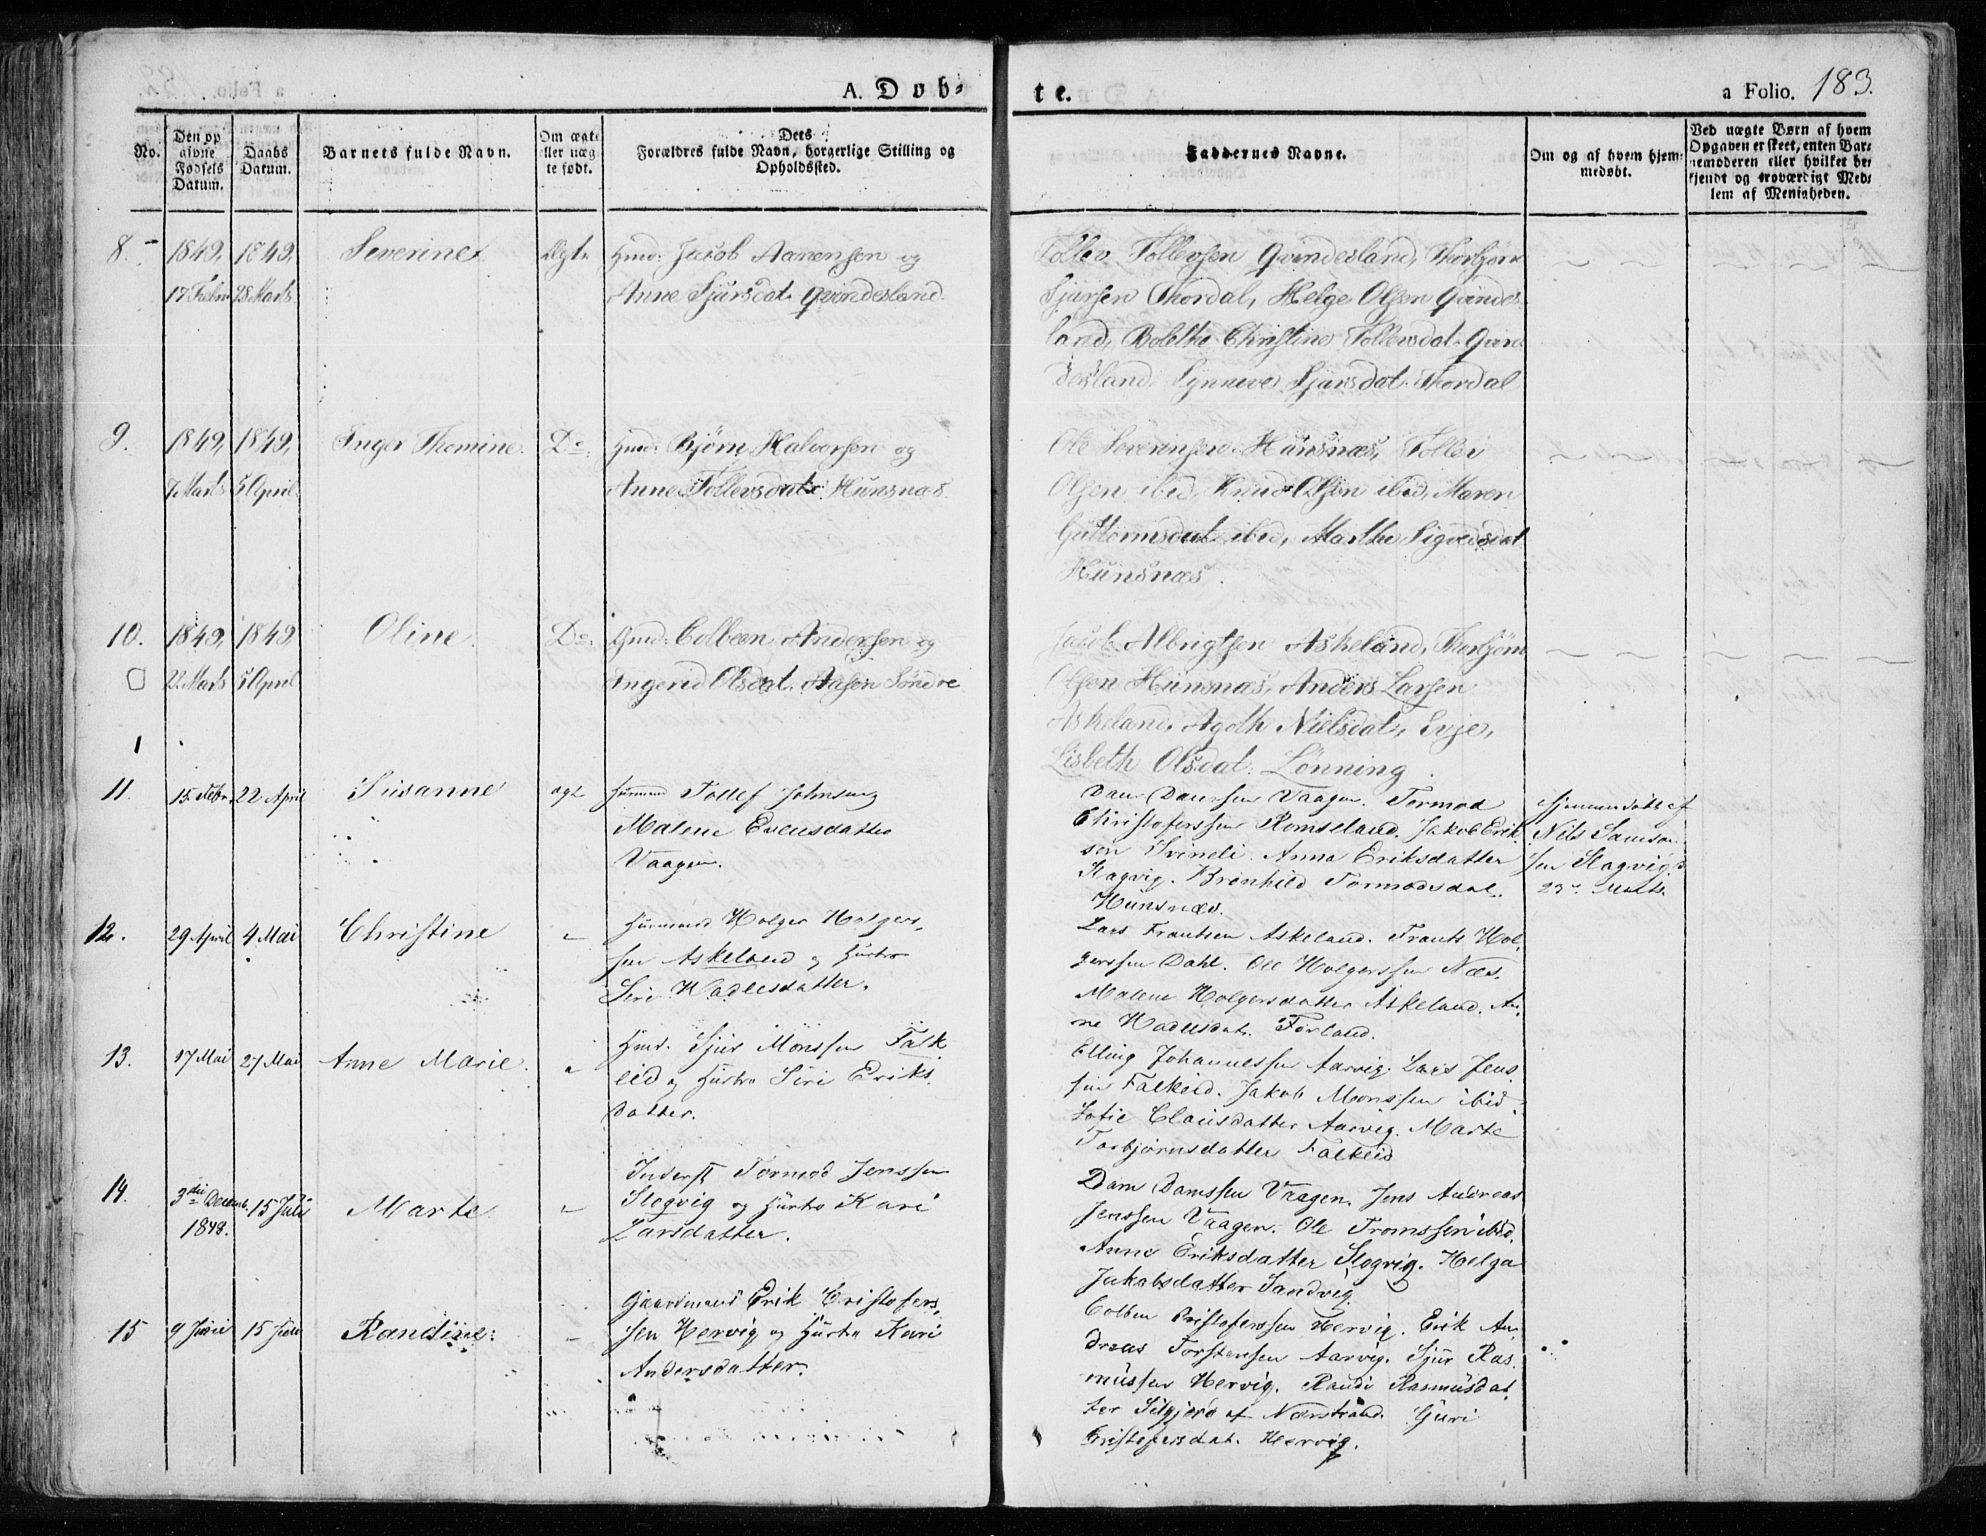 A. Døb-
te.
a Folio. 183.
No.
Den op
givne
Fødsels
Datum.
Daabs
Datum.
Barnets fulde Navn.
Om ægte
eller uæg
te født.
Dets
Forældres fulde Navn, borgerlige Stilling og
Opholdssted.
Faddernes Navne.
Om og af hvem hjem-
medøbt.
Ved uægte Børn af hvem
Opgaven er skeet, enten Bar-
nemoderen eller hvilket be-
kjendt og troværdigt Med-
lem af Menigheden.
8. 1849, 1849, Severine Ægte Gmd: Jacob Aanensen og
17 Febr 28 Marts Anne Sjursdat. Qvindesland.
Tollev Tollevsen Qvindesland, Thorbjørn
Sjursen Thordal, Helge Olsen Qvindes
land, Bolethe Christine Tollevsdat. Qvin
desland, Synneve Sjursdat. Thordal
9. 1849, 1849, Inger Thomine. Do: Gmd: Bjørn Halvorsen og
7 Marts 5 April Anne Tollevsdat. Hunsnæs.
Ole Severinsen Hunsnæs, Tollev
Olsen ibid, Knud Olsen ibid, Maren
Guttormsdat. ibid, Marthe Sigvedsdat
Hunsnæs.
10. 1849, 1849, Oline. Do: Gmd: Colbeen Andersen og
22 Marts 5 April Ingerid Olsdat. Aasen Søndre
Jacob Albrigtsen Askeland, Thorbjørn
Olsen Hunsnæs, Anders Larsen
Askeland, Agoth Nielsdat, Evje,
Lisbeth Olsdat: Lønning.
11. 15 Febr. 22 April Susanne ægt. Huusmand Tollef Johnsen og
Malene Evensdatter
Vaagen.
Dan Dansen Vaagen. Tormod
Christoferssen Romseland. Jakob Erik
sen Svineli. Anna Eriksdatter
Slagvig. Brönhild Tormodsdat.
Hunsnæs.
Hjemmedøbt af
Nils Samson
sen Slagvig d
23de Marts.
12. 29 April 4 Mai Christine Huusmand Holger Holgers,
sen Askeland og Hustro
Siri Hadlesdatter.
Lars Frantsen Askeland. Frants Hol,
gerssen Dahl. Ole Holgerssen Næs.
Malene Holgersdatter Askeland. An,
ne Hadlesdat. Førland.
13. 17 Mai 27 Mai Anne Marie. Gmd. Sjur Monssen Falk
eid og Hustro Siri Eriks
datter.
Elling Johannessen Aarvig. Lars Jens
sen Falkeid. Jakob Monssen ibid.
Sofie Clausdatter Aarvig. Marte
Torbjørnsdatter Falkeid
14. 3die Decemb. 15 Juli Marte. Inderst Tormod Jenssen
1848. Slogvig og Hustro Kari
Larsdatter.
Dam Damssen Vaagen. Jens Andreas
Jenssen Vaagen. Ole Tromssen ibid.
Anne Eriksdatter Slogvig. Helga
Jakobsdatter Sandvig.
15 9 Juni 15 Juli Randine: Gaardmand Erik Cristofers,
sen Hervig og Hustro Kari
Andersdatter.
Colben Cristoferssen Hervig. Erik An,
dreas Torstensen Aarvig. Sjur Ras,
mussen Hervig. Randi Rasmusdat,
ter Silgjerd af Nærstrand. Guri
Cristofersdat. Hervig.